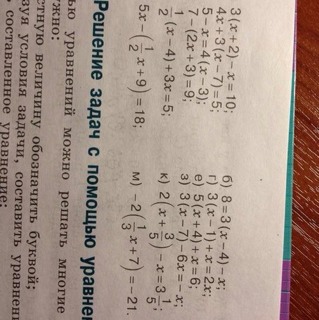 3(x+2)-x=10;
4x+3(x-7)=5;
5-x=4(x-3);
7-(2x+3)=9;
1/2(x-4)+3x=5;
5x-(1/2x+9)=18;
б) 8=3(x-4)-x;
г) 3(x-1)+x=2x;
е) 5(x+4)+x=6;
з) 3(x-7)-6x=-x;
к) 2(x+3/5)-x=3 1/5;
м) -2(1/3x+7)=-21.
Решение задач с помощью уравнен
ью уравнений можно решать многие
ужно:
стную величину обозначить буквой;
зуя условия задачи, составить уравнени
составленное уравнение;